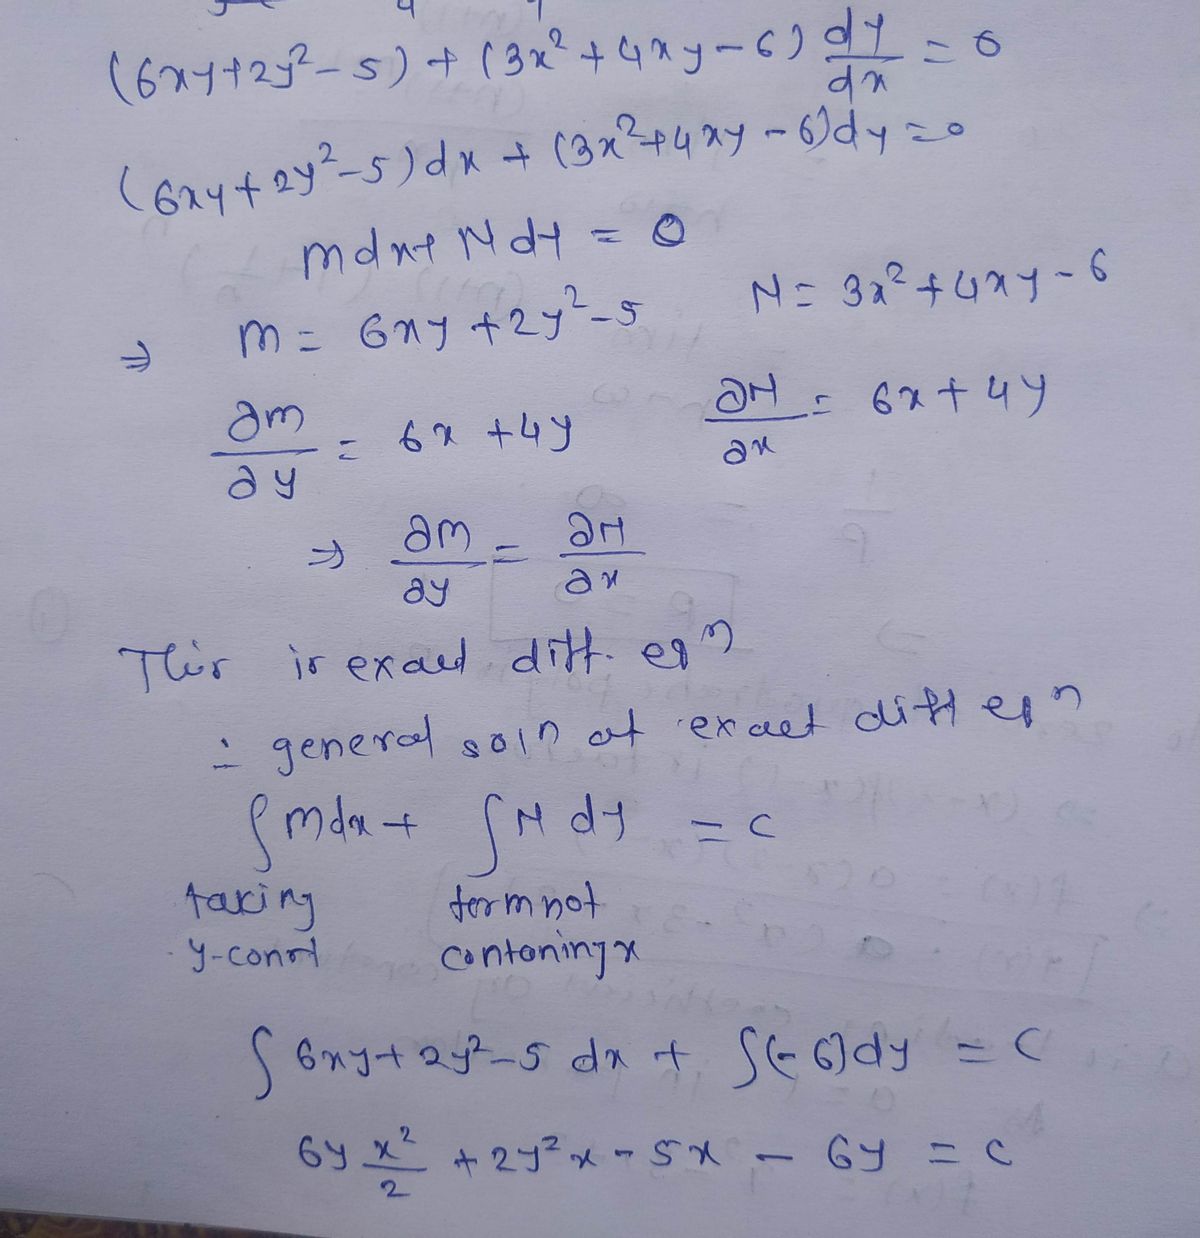 (6xy+2y²-5) + (3x²+4xy-6) dy/dx = 0
(6xy+2y²-5)dx + (3x²+4xy-6)dy=0
mdx+Ndy = 0
⇒ m = 6xy+2y²-5 N = 3x²+4xy-6
∂m/∂y = 6x+4y ∂N/∂x = 6x+4y
⇒ ∂m/∂y = ∂N/∂x
This is exact diff. eqⁿ
∴ general solⁿ of exact diff eqⁿ
∫mdx + ∫N dy = c
taking term not
y-const contoning x
∫6xy+2y²-5 dx + ∫(-6)dy = c
6y x²/2 + 2y²x - 5x - 6y = c